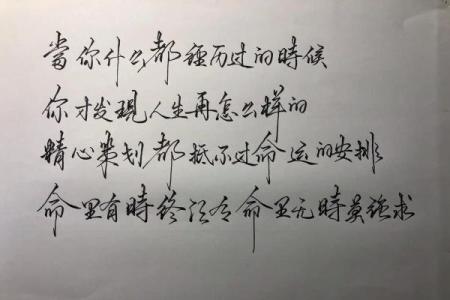 當你什么都経历过的時候
你才发現人生再怎么样的
精心策划都抵不过命运的安排
命里有時终须有命里无時莫强求